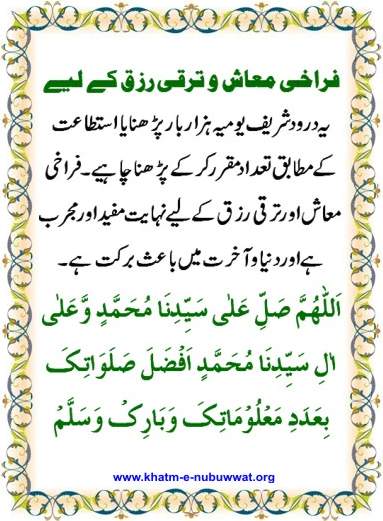 فراخی معاش و ترقی رزق کے لیے
یہ درود شریف یومیہ ہزار بار پڑھنا یا استطاعت
کے مطابق تعداد مقرر کر کے پڑھنا چاہیے۔ فراخی
معاش اور ترقی رزق کے لیے نہایت مفید اور مجرب
ہے اور دنیا و آخرت میں باعث برکت ہے۔
اَللّٰهُمَّ صَلِّ عَلٰى سَيِّدِنَا مُحَمَّدٍ وَّعَلٰى
اٰلِ سَيِّدِنَا مُحَمَّدٍ اَفْضَلَ صَلَوَاتِكَ
بِعَدَدِ مَعْلُوْمَاتِكَ وَبَارِكْ وَسَلِّمْ
www.khatm-e-nubuwwat.org